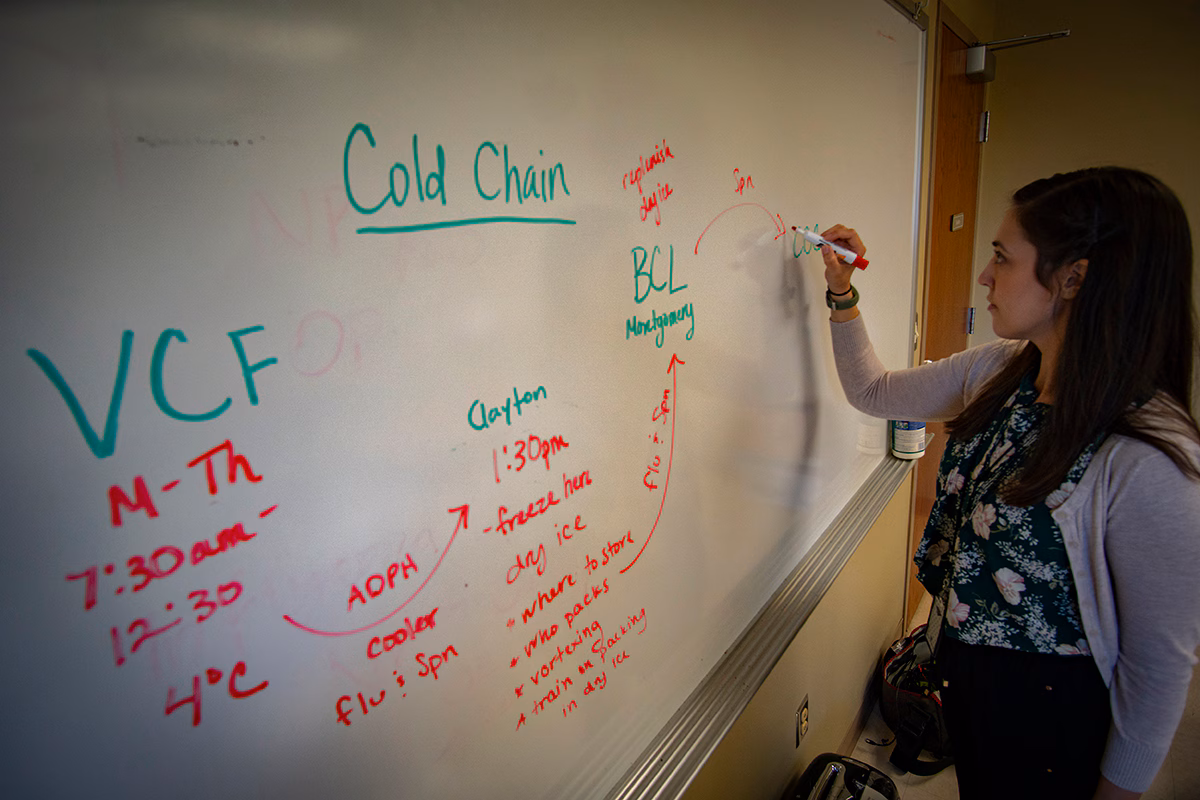 Cold Chain
VCF
M-Th
7:30am-
12:30
4°C
ADPH
cooler
flu & Spn
Clayton
1:30pm
-freeze here
dry ice
* where to store
* who packs
* vortexing
* train on packing
in dry ice
flu & Spn
replenish
dry ice
BCL
Montgomery
Spn